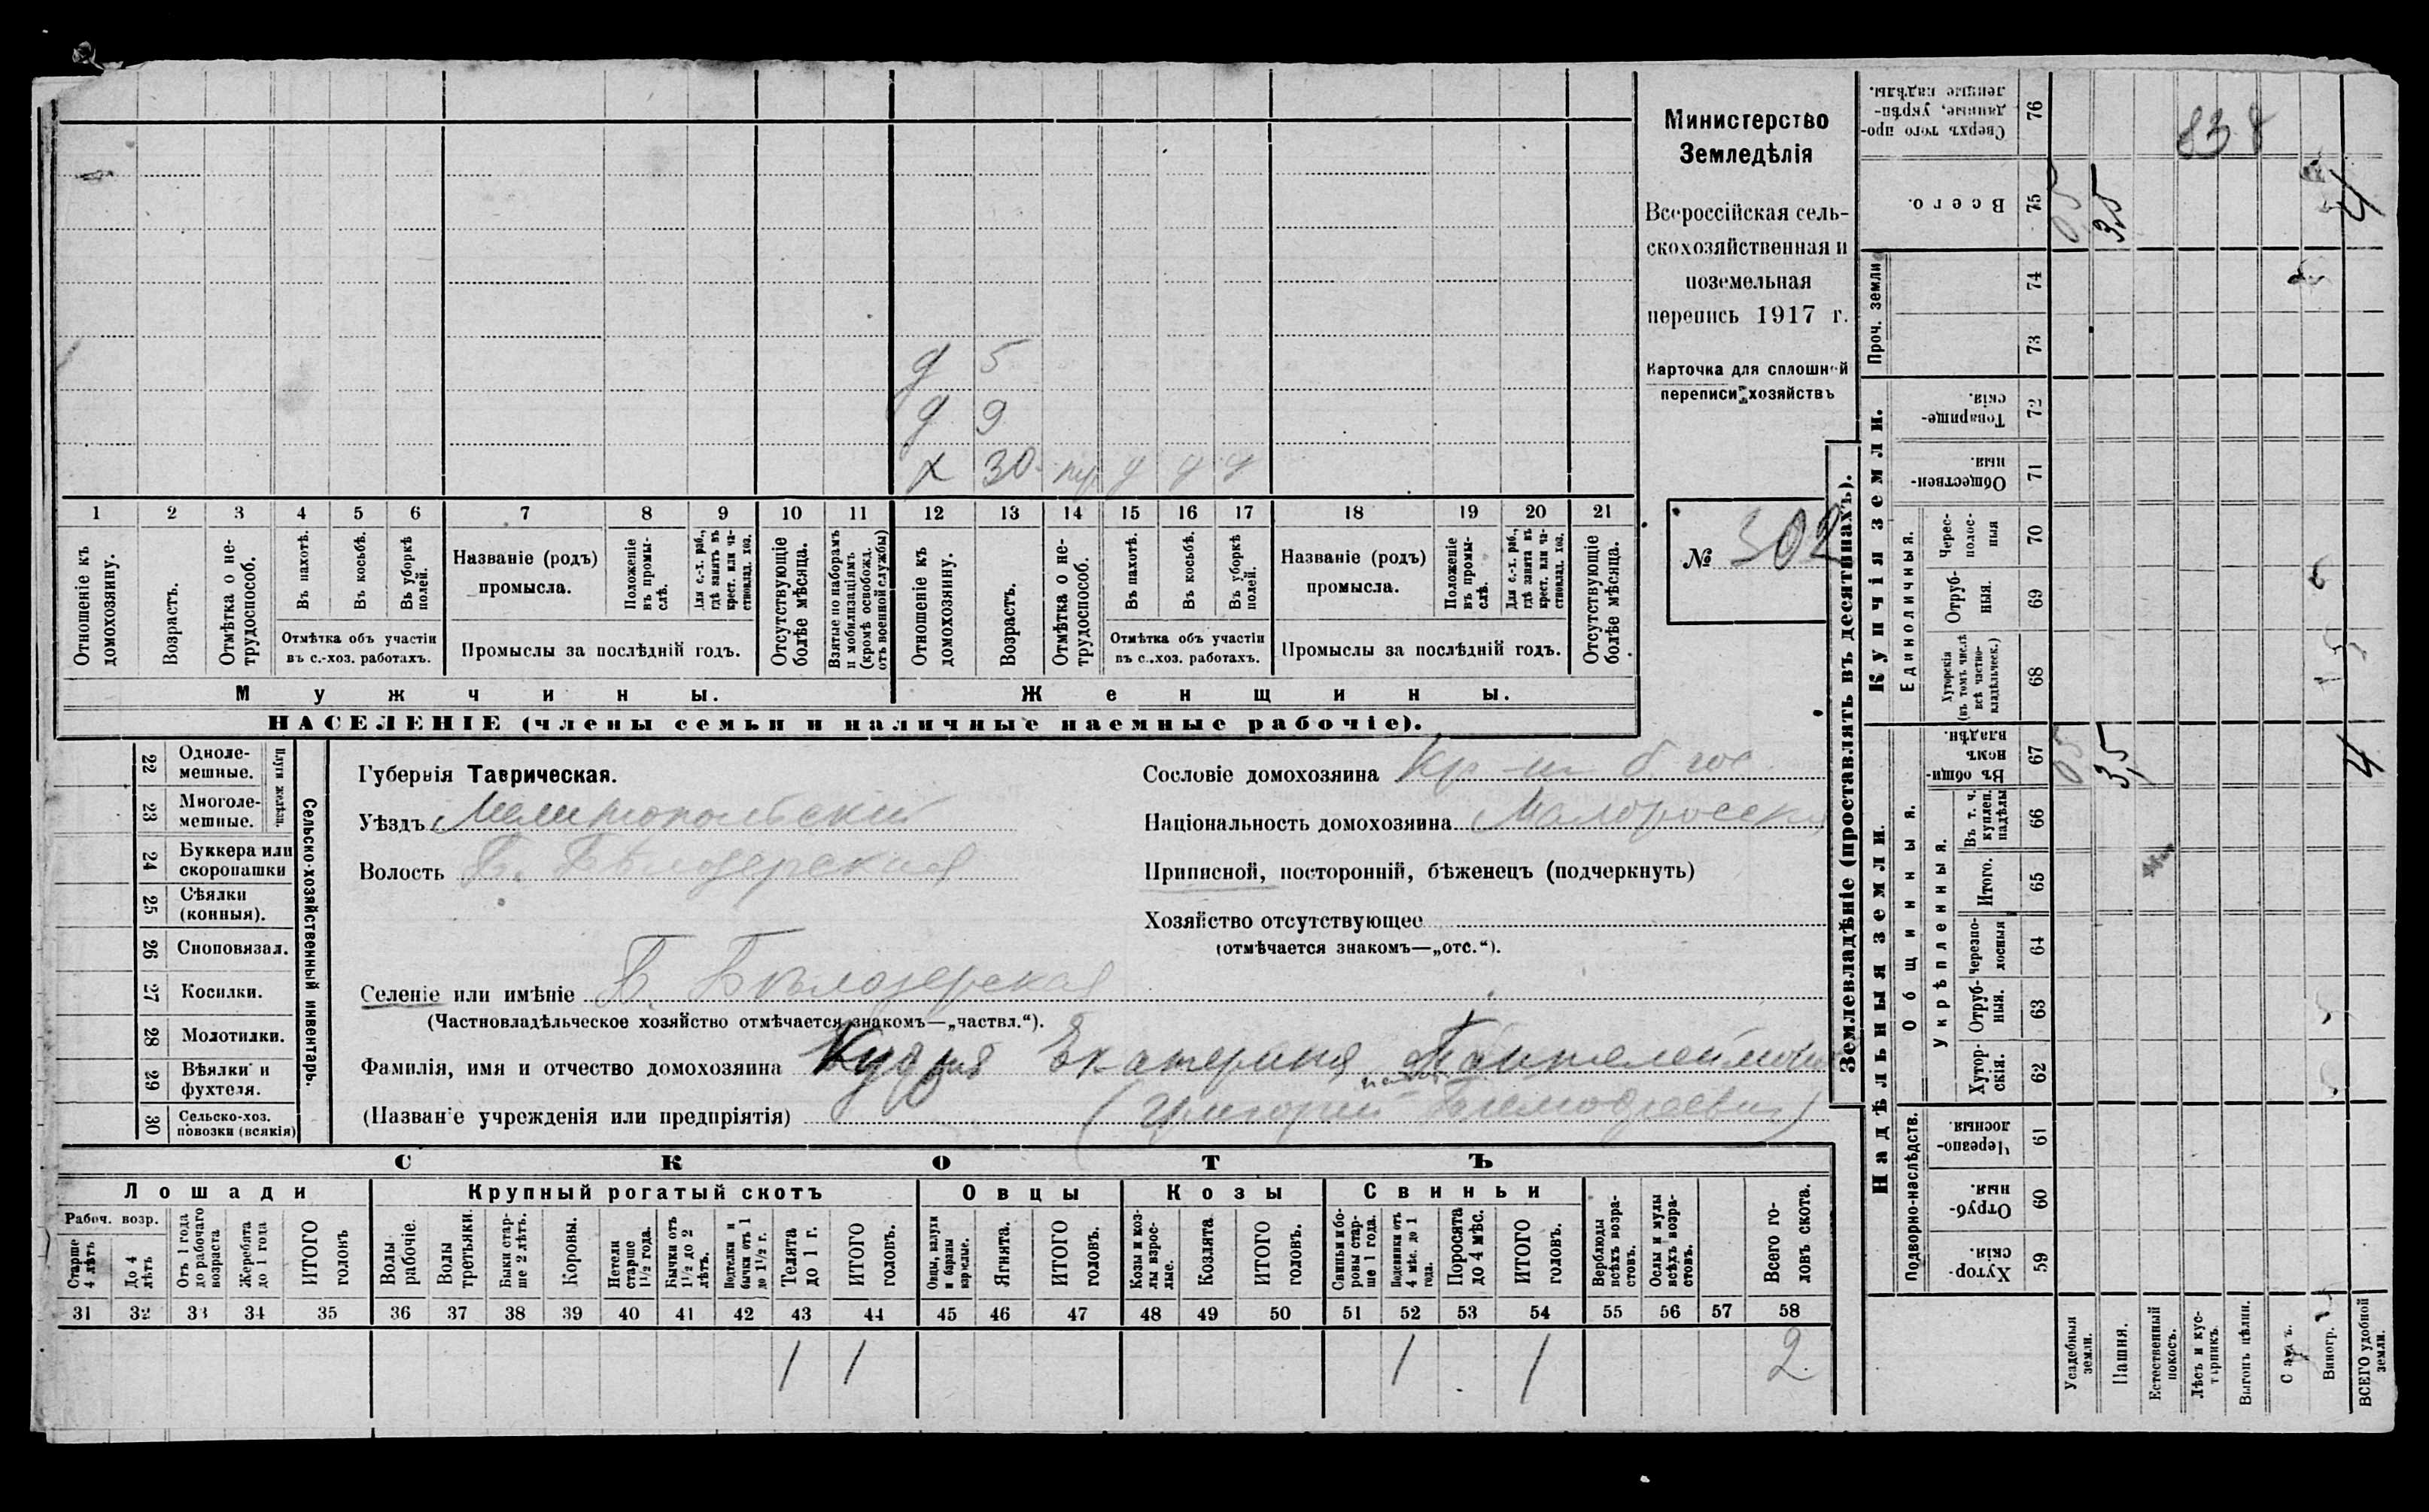 д 5
д 9
х 30 пр ч ч ч
1 2 3 4 5 6 7 8 9 10 11 12 13 14 15 16 17 18 19 20 21
Отношеніе къ домохозяину.
Возрастъ.
Отмѣтка о нетрудоспособ.
Въ пахотѣ.
Въ косьбѣ.
Въ уборкѣ полей.
Отмѣтка объ участіи
въ с.-хоз. работахъ.
Названіе (родъ)
промысла.
Положеніе въ промыслѣ.
Для с.-х. раб., гдѣ занятъ въ крест. или частновлад. хоз.
Промыслы за послѣдній годъ.
Отсутствующіе болѣе мѣсяца.
Взятые по наборамъ и мобилизаціямъ (кромѣ освобожд. отъ военной службы)
Отношеніе къ домохозяину.
Возрастъ.
Отмѣтка о нетрудоспособ.
Въ пахотѣ.
Въ косьбѣ.
Въ уборкѣ полей.
Отмѣтка объ участіи
въ с.-хоз. работахъ.
Названіе (родъ)
промысла.
Положеніе въ промыслѣ.
Для с.-х. раб., гдѣ занята въ крест. или частновлад. хоз.
Промыслы за послѣдній годъ.
Отсутствующіе болѣе мѣсяца.
Мужчины.
Женщины.
НАСЕЛЕНІЕ (члены семьи и наличные наемные рабочіе).
Министерство
Земледѣлія
Всероссійская сель-
скохозяйственная и
поземельная
перепись 1917 г.
Карточка для сплошной
переписи хозяйствъ
№ 302
22 Однолемешные.
23 Многолемешные.
Плуги желѣзн.
24 Буккера или скоропашки
25 Сѣялки (конныя).
26 Сноповязал.
27 Косилки.
28 Молотилки.
29 Вѣялки и фухтеля.
30 Сельско-хоз. повозки (всякія)
Сельско-хозяйственный инвентарь.
Губернія Таврическая.
Уѣздъ Мелитопольскій
Волость Б. Бѣлозерская
Селеніе или имѣніе Б. Бѣлозерская
(Частновладѣльческое хозяйство отмѣчается знакомъ—„частвл.“).
Фамилія, имя и отчество домохозяина Кудря Екатерина Пантелеймон
(Названіе учрежденія или предпріятія) (Григорій Тимофеевич)
Сословіе домохозяина
Національность домохозяина Малоросск
Приписной, посторонній, бѣженецъ (подчеркнуть)
Хозяйство отсутствующее
(отмѣчается знакомъ—„отс.“).
СКОТЪ
Лошади
Крупный рогатый скотъ
Овцы
Козы
Свиньи
Рабоч. возр.
Старше 4 лѣтъ
До 4 лѣтъ
Отъ 1 года до рабочаго возраста
Жеребята до 1 года
ИТОГО головъ
Волы рабочіе.
Волы третьяки.
Быки старше 2 лѣтъ.
Коровы.
Нетели старше 1½ года.
Бычки отъ 1½ до 2 лѣтъ.
Подтелки и бычки отъ 1 до 1½ г.
Телята до 1 г.
ИТОГО головъ.
Овцы, валухи и бараны взрослые.
Ягнята.
ИТОГО головъ.
Козы и козлы взрослые.
Козлята
ИТОГО головъ.
Свиньи и боровы старше 1 года.
Подсвинки отъ 4 мѣс. до 1 года.
Поросята до 4 мѣс.
ИТОГО головъ.
Верблюды всѣхъ возрастовъ.
Ослы и мулы всѣхъ возрастовъ.
Всего головъ скота.
31 32 33 34 35 36 37 38 39 40 41 42 43 44 45 46 47 48 49 50 51 52 53 54 55 56 57 58
1 1 1 1 2
Землевладѣніе (проставлять въ десятинахъ).
Купчія земли.
Надѣльныя земли.
Сверхъ того проданные, укрѣпленные надѣлы. 76
838
Всего. 75
05 3,5 4
Проч. земли
74
73
Товарищескія. 72
Общественныя. 71
Единоличныя.
Черезполосныя 70
Отрубныя. 69
Хуторскія (въ томъ числѣ всѣ частновладѣльческ.) 68
Общинныя.
Въ общинномъ владѣн. 67
05 3,5 4
Укрѣпленныя.
Въ т. ч. куплен. надѣлы 66
Итого. 65
Черезполосныя 64
Отрубныя. 63
Хуторскія. 62
Подворно-наслѣдств.
Черезполосныя. 61
Отрубныя. 60
Хуторскія. 59
Усадебныя земли.
Пашня.
Естественный покосъ.
Лѣсъ и кустарникъ.
Выгонъ цѣлин.
Садъ.
Виногр.
ВСЕГО удобной земли.